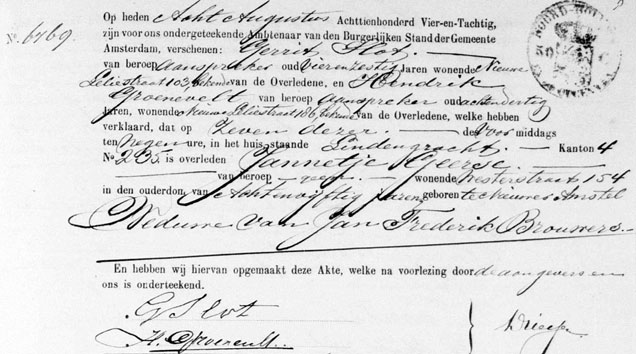 Op heden Acht Augustus Achttienhonderd Vier-en-Tachtig,
No. 6469. zijn voor ons ondergeteekende Ambtenaar van den Burgerlijken Stand der Gemeente
Amsterdam, verschenen: Gerrit Slot,
van beroep aanspreker oud vierenzestig Jaren wonende Nieuwe
Leliestraat 103, bekende van de Overledene, en Hendrik
Groenevelt van beroep Aanspreker oud achtendertig
Jaren, wonende Nieuwe Leliestraat 166, bekende van de Overledene, welke hebben
verklaard, dat op Zeven dezer des voor middags
ten negen ure, in het huis staande Lindengracht Kanton 4
No. 235 is overleden Jannetje
van beroep geen wonende Westerstraat 154
in den ouderdom van Achtenvijftig Jaren geboren te Nieuwer Amstel
Weduwe van Jan Frederik Brouwers
En hebben wij hiervan opgemaakt deze Akte, welke na voorlezing door de aangevers en
ons is onderteekend.
G Slot
H. Groenevelt